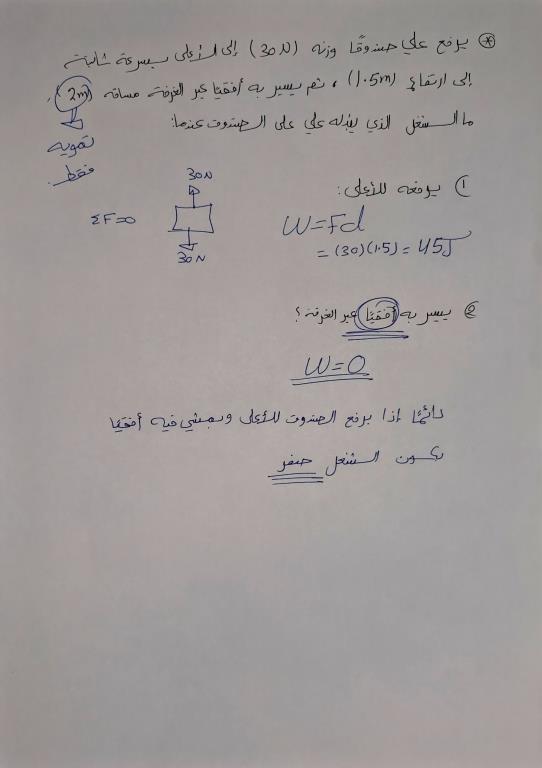 * يرفع علي صندوقًا وزنه (30N) إلى الأعلى بسرعة ثابتة
إلى ارتفاع (1.5m) ، ثم يسير به أفقيًا عبر الغرفة مسافة (2m).
ما الشغل الذي يبذله علي على الصندوق عندما:
تمويه
فقط.
1) يرفعه للأعلى:
30N
ΣF=0
30N
W=Fd
= (30)(1.5) = 45J
2) يسير به أفقيًا عبر الغرفة؟
W=0
دائمًا إذا يرفع الصندوق للأعلى وبمشي فيه أفقيا
يكون الشغل صفر